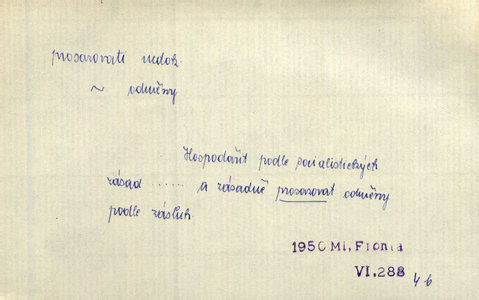 prosazovati nedok.
~ odměny
Hospodařit podle socialistických
zásad ..... a zásadně prosazovat odměny
podle zásluh.
1950 Ml. Fronta
VI.288 46